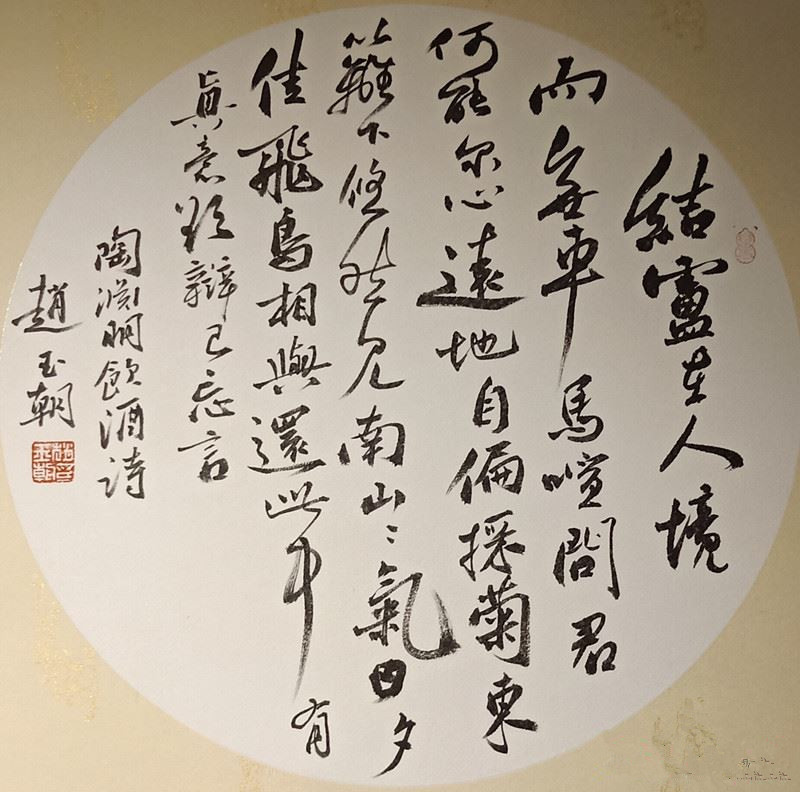 結盧在人境
而無車馬喧問君
何能尔心遠地自偏採菊東
籬下悠然見南山〻氣日夕
佳飛鳥相與還此中有
眞意欲辯已忘言
陶淵明飲酒詩
趙玉朝